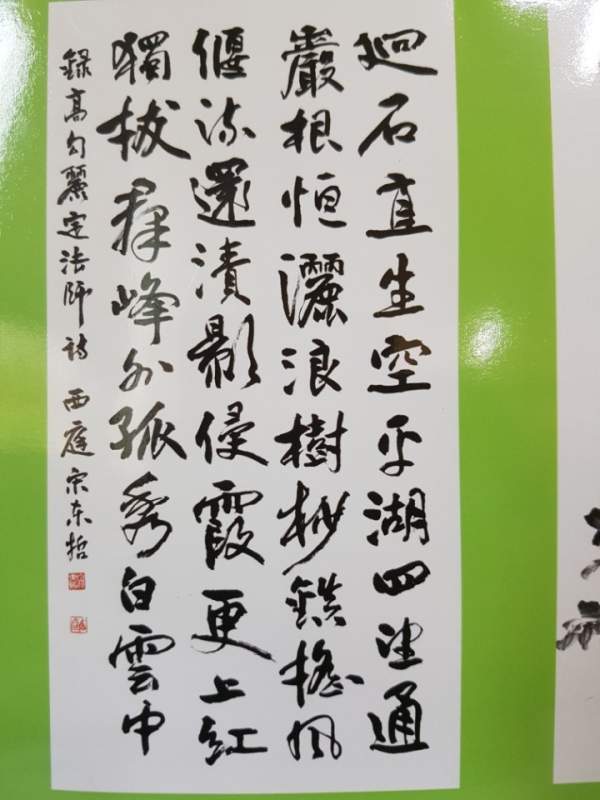 逈石直生空平湖四望通
巖根恒灑浪樹杪鎮搖風
偃流還漬影侵霞更上紅
獨拔群峰外孤秀白雲中
錄高句麗定法師詩 西庭宋東哲